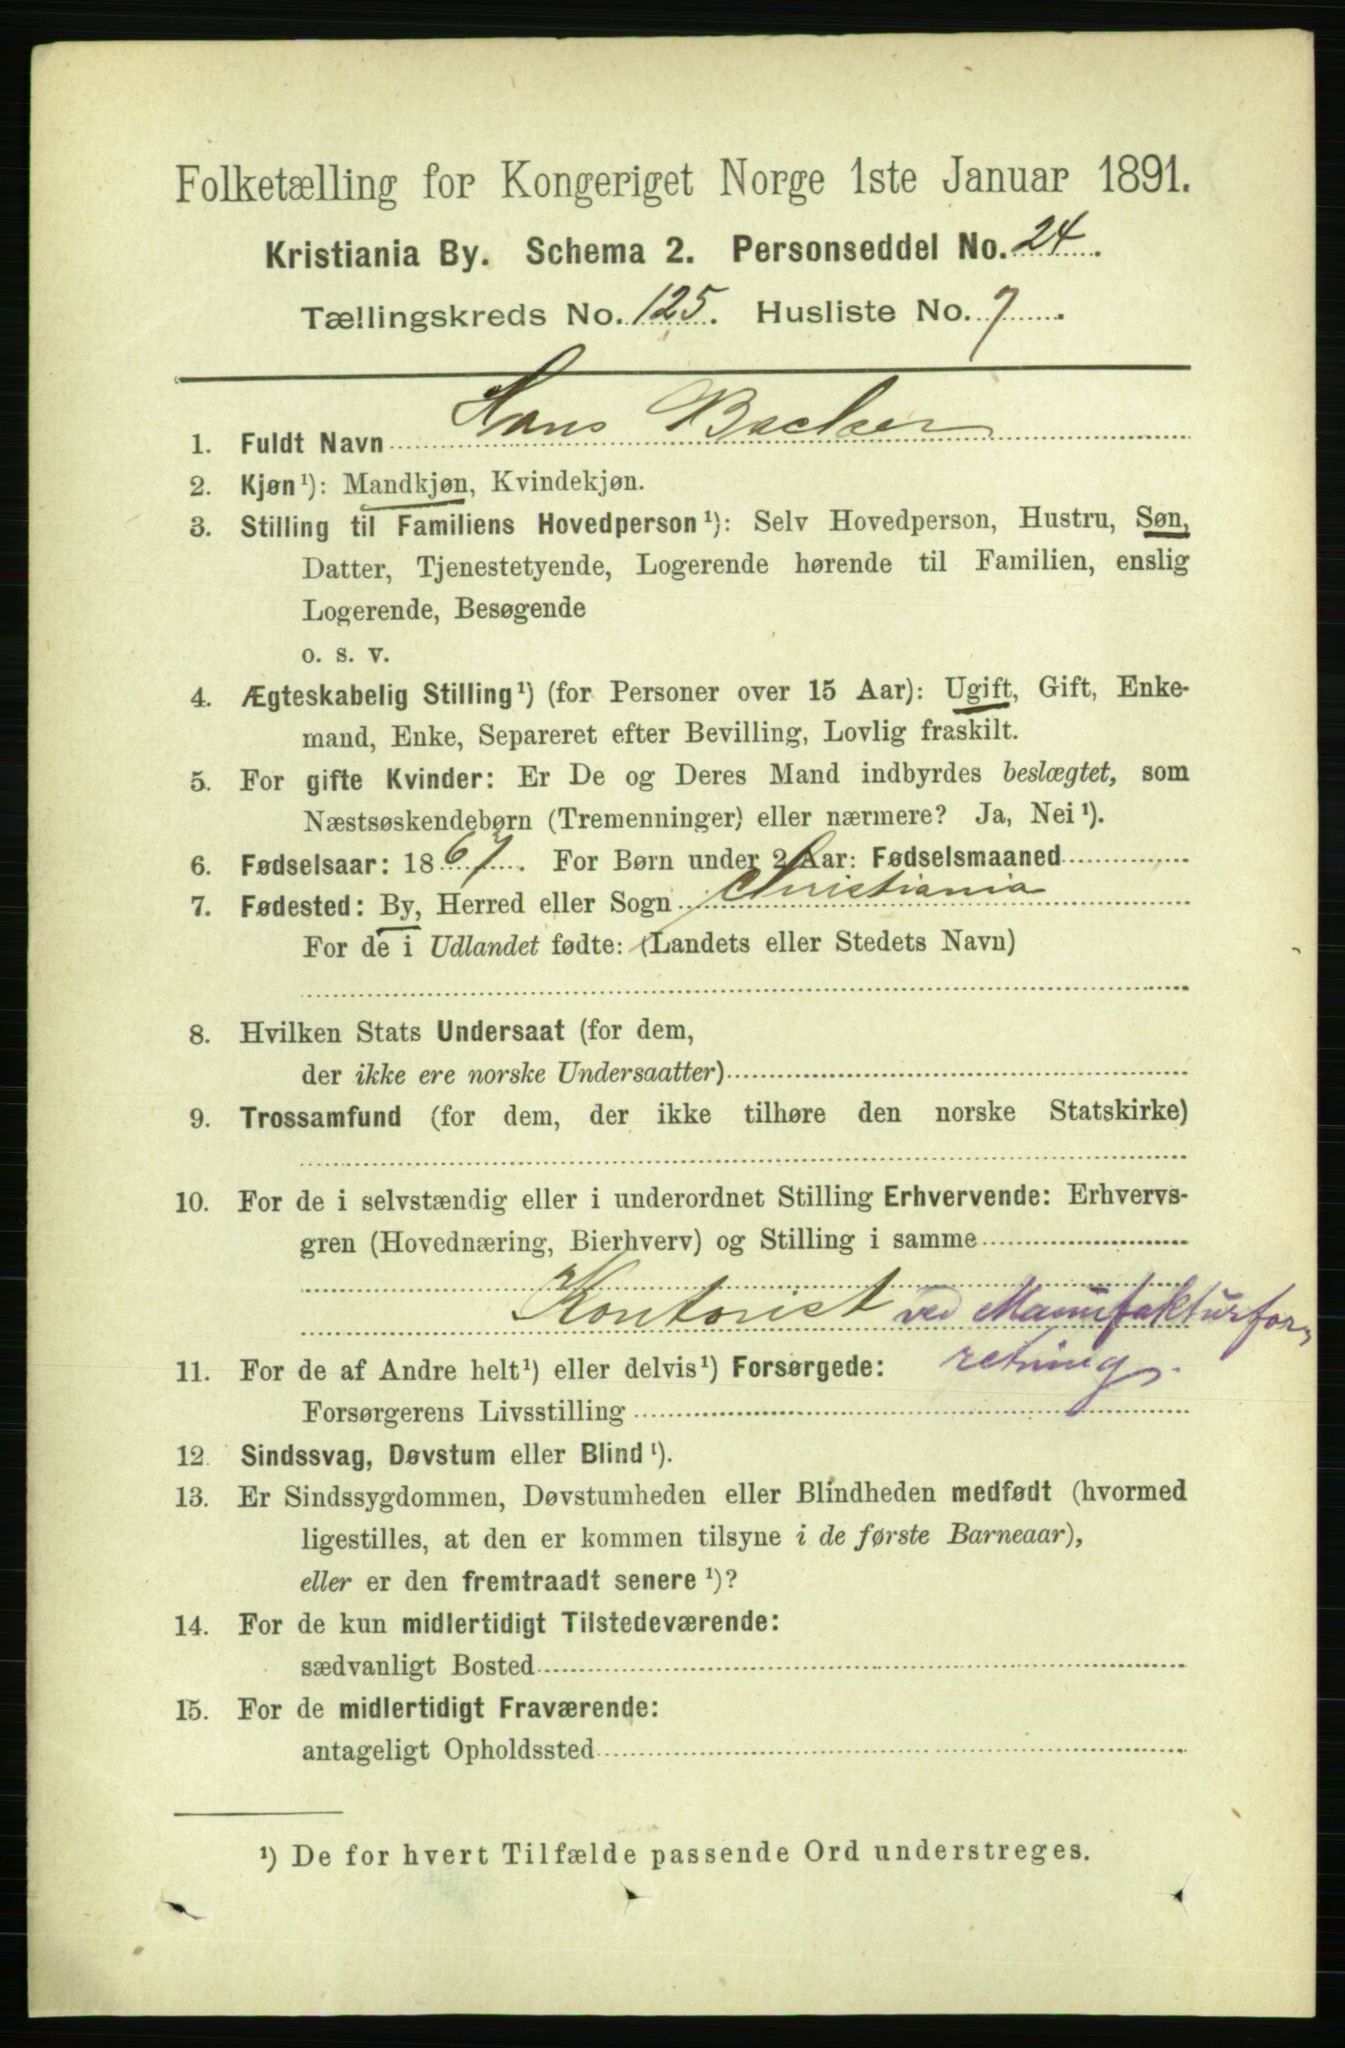 Folketælling for Kongeriget Norge 1ste Januar 1891.
Kristiania By. Schema 2. Personseddel No. 24.
Tællingskreds No. 125. Husliste No. 7.
1. Fuldt Navn Hans Backer
2. Kjøn¹): Mandkjøn, Kvindekjøn.
3. Stilling til Familiens Hovedperson¹): Selv Hovedperson, Hustru, Søn,
Datter, Tjenestetyende, Logerende hørende til Familien, enslig
Logerende, Besøgende
o. s. v.
4. Ægteskabelig Stilling¹) (for Personer over 15 Aar): Ugift, Gift, Enke-
mand, Enke, Separeret efter Bevilling, Lovlig fraskilt.
5. For gifte Kvinder: Er De og Deres Mand indbyrdes beslægtet, som
Næstsøskendebørn (Tremenninger) eller nærmere? Ja, Nei¹).
6. Fødselsaar: 1867. For Børn under 2 Aar: Fødselsmaaned
7. Fødested: By, Herred eller Sogn Christiania
For de i Udlandet fødte: (Landets eller Stedets Navn)
8. Hvilken Stats Undersaat (for dem,
der ikke ere norske Undersaatter)
9. Trossamfund (for dem, der ikke tilhøre den norske Statskirke)
10. For de i selvstændig eller i underordnet Stilling Erhvervende: Erhvervs-
gren (Hovednæring, Bierhverv) og Stilling i samme
Kontorist ved Manufakturfor-
retning.
11. For de af Andre helt¹) eller delvis¹) Forsørgede:
Forsørgerens Livsstilling
12. Sindssvag, Døvstum eller Blind¹).
13. Er Sindssygdommen, Døvstumheden eller Blindheden medfødt (hvormed
ligestilles, at den er kommen tilsyne i de første Barneaar),
eller er den fremtraadt senere¹)?
14. For de kun midlertidigt Tilstedeværende:
sædvanligt Bosted
15. For de midlertidigt Fraværende:
antageligt Opholdssted
¹) De for hvert Tilfælde passende Ord understreges.